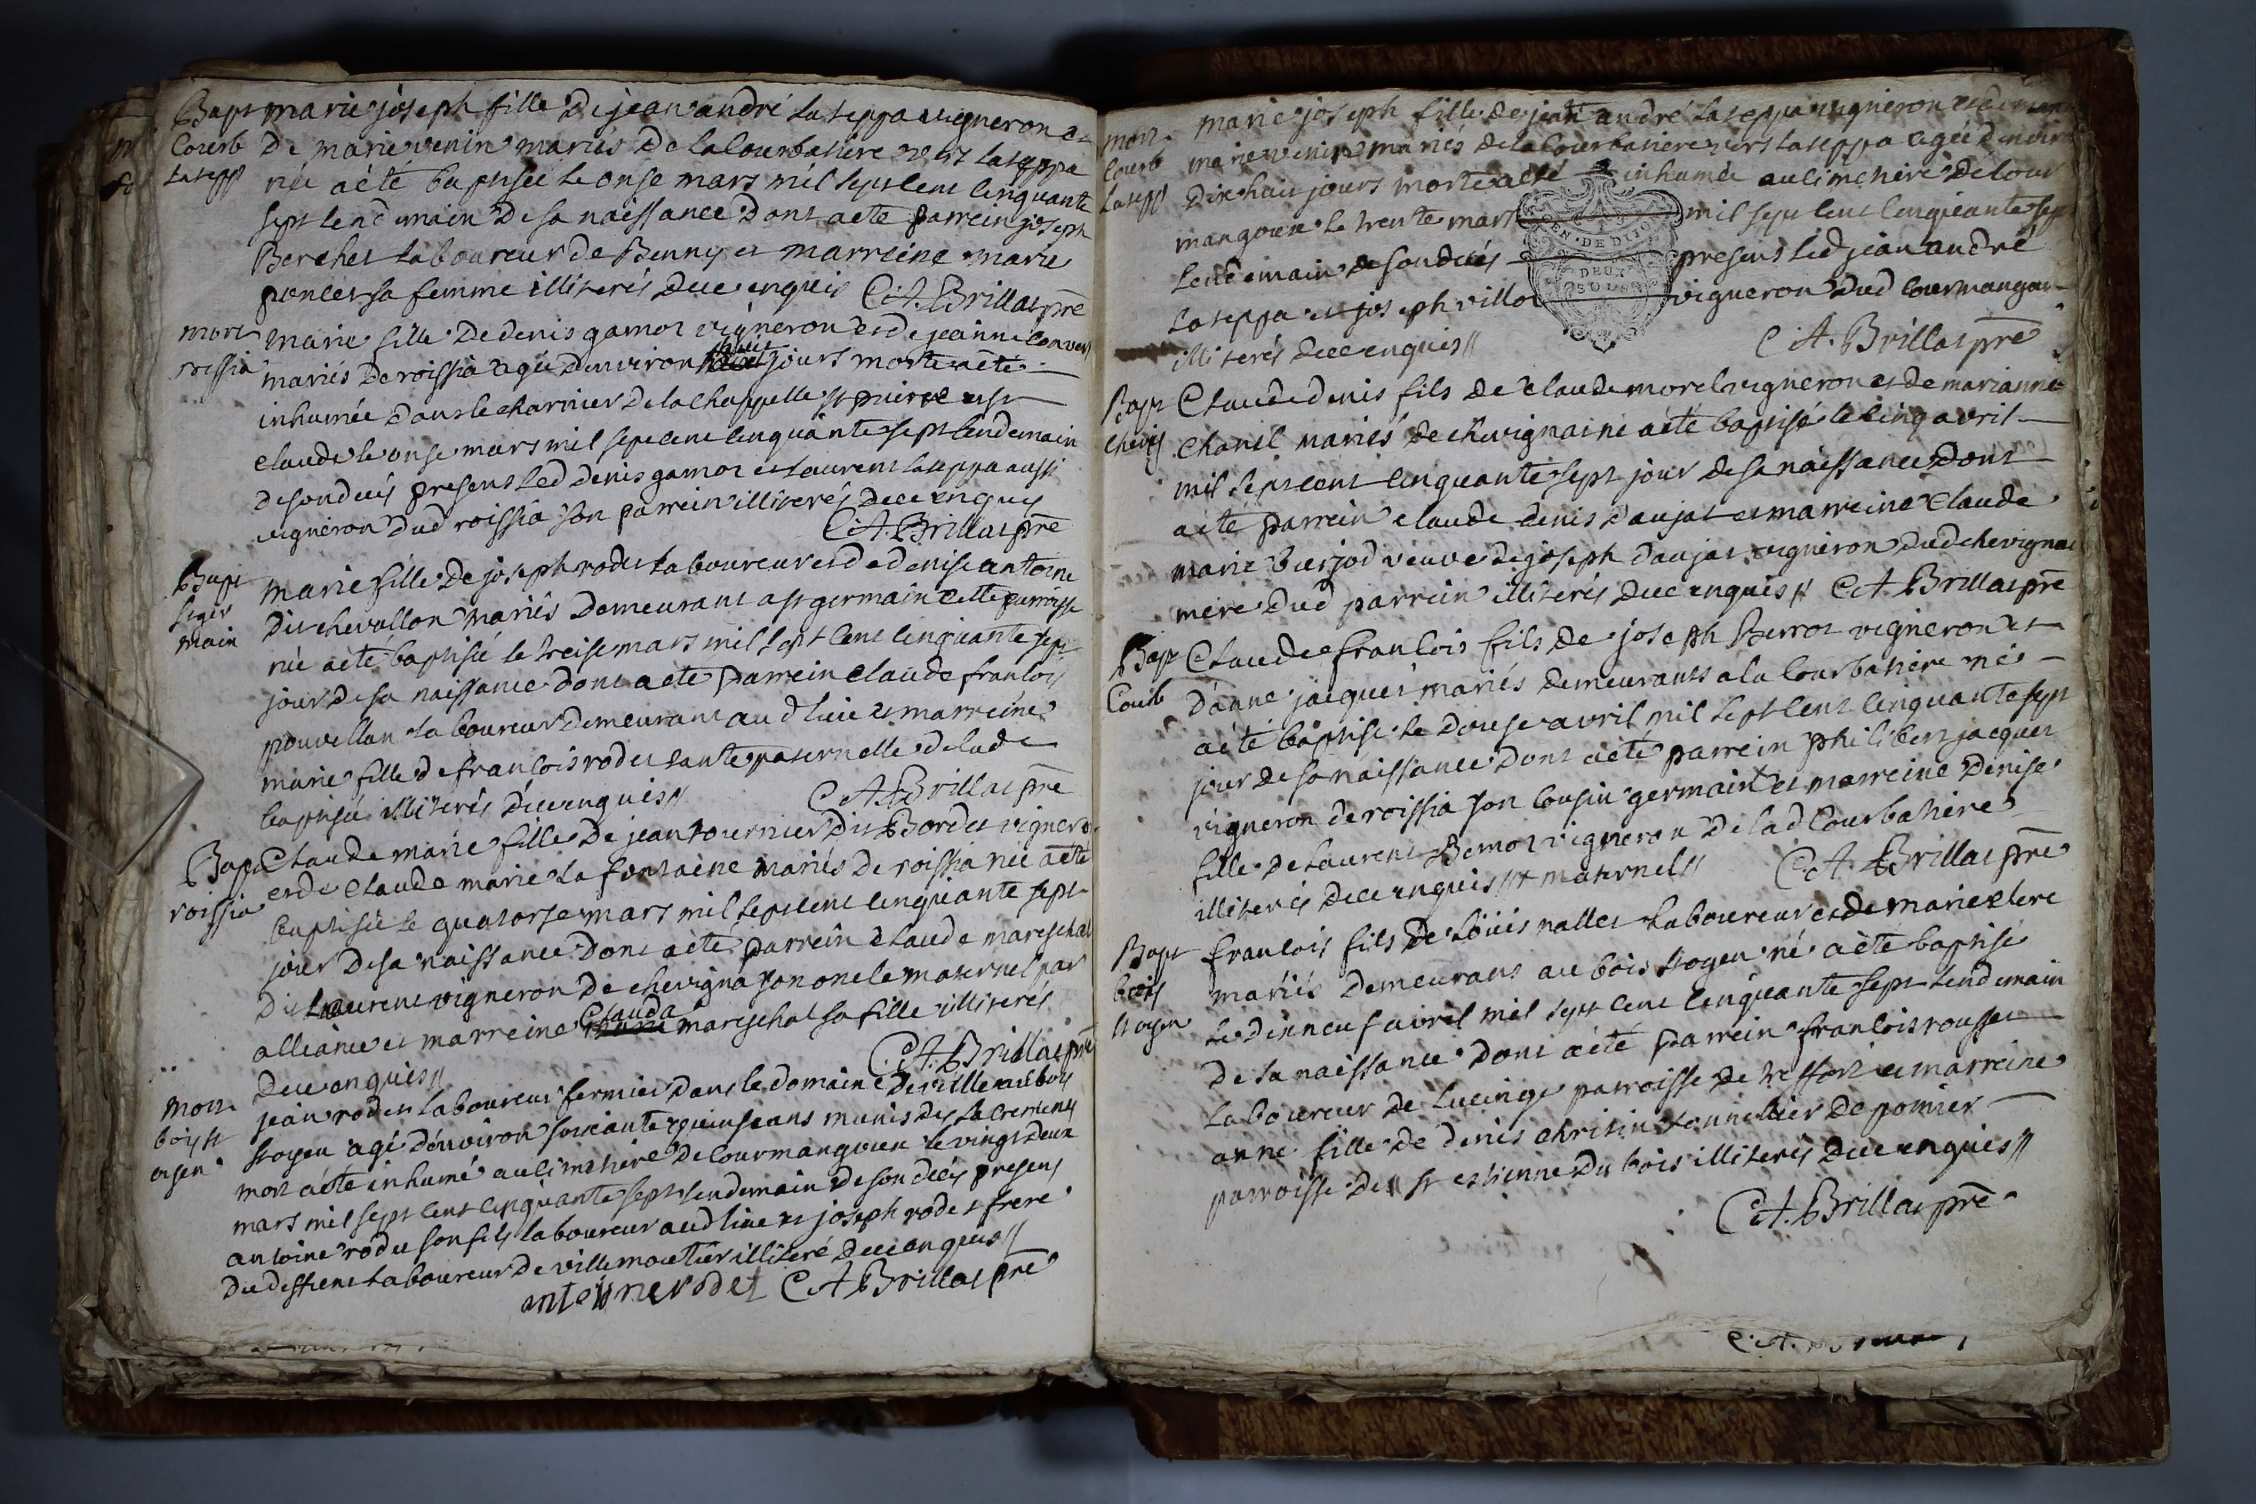 Bapt marie joseph fille de jean andré Laseppa vigneron et
Courb de marie venin mariés de la Courbatiere vers laseppa
Lasepp née a èté baptisée le onse mars mil sept cent cinquante
sept lendemain de sa naissance dont acte parrein joseph
Berchet laboureur de Benny et marreine marie
poncet sa femme illiterés de ce enquis C A. Brillat prê
mort marie fille de denis gamot vigneron et de jeanne convert
roissia mariés de roissia agée d'environ huit jours morte a èté
inhumée dans le charnier de la chappelle st pierre et st
claude le onse mars mil sept cent cinquante sept lendemain
de son decés presens led denis gamot et Laurent laseppa aussi
vigneron dud roissia son parrein illiterés de ce enquis
C A. Brillat prê
Bapt marie fille de joseph rodet laboureur et de denise antoine
st ger dit chevallon mariés demeurant a st germain cette parroisse
main née a èté baptisée le treise mars mil sept cent cinquante sept
jour de sa naissance dont acte parrein claude francois
pouvellan laboureur demeurant aud lieu et marreine
marie fille de francois rodet tante paternelle de lade
baptisée illiterés de ce enquis// C A. Brillat prê
Bapt Claude marie fille de jean tournier dit Bordet vigneron
roissia et de Claude marie la fontaine mariés de roissia née a èté
baptisée le quatorse mars mil sept cent cinquante sept
jour de sa naissance dont acte parrein claude mareschal
dit Laurent vigneron de chevigna son oncle maternel par
alliance et marreine Clauda mareschal sa fille illiterés
de ce enquis// C A. Brillat prê
mort jean rodet laboureur fermier dans le domaine de ville au bois
bois st stogen agé d'environ soixante et quinse ans munis des sacremens
ogen mort a èté inhumé au cimetiere de courmangoux le vingt deux
mars mil sept cent cinquante sept lendemain de son decés presens
antoine rodet son fils laboureur aud lieu et joseph rodet frere
du deffunt laboureur de villemoutier illiteré de ce enquis//
antoine rodet C A Brillat prê
mort marie joseph fille de jean andré laseppa vigneron et de
Courb marie venin mariés de la Courbatiere vers laseppa agée d'environ
Lasepp dix huit jours morte a èté inhumée au cimetiere de cour
mangoux le trente mars mil sept cent cinquante sept
lendemain de son decés presens led jean andré
laseppa et joseph villot vigneron dud courmangoux
illiterés de ce enquis// C A. Brillat prê
EN. DE DIJO
DEUX
SOLS
Bapt Claude denis fils de claude morel vigneron et de marianne
chevig chanel mariés de chevigna né a èté baptisé le cinq avril
mil sept cent cinquante sept jour de sa naissance dont
acte parrein claude denis daujat et marreine claude
marie Burjod veuve de joseph daujat vigneron dud chevigna
mere dud parrein illiterés de ce enquis// C A. Brillat prê
Bapt Claude francois fils de joseph Perrot vigneron et
Courb d'anne jacquet mariés demeurants a la Courbatiere né
a èté baptisé le douse avril mil sept cent cinquante sept
jour de sa naissance dont acte parrein philibert jacquet
vigneron de roissia son cousin germain + et marreine denise
fille de laurent Bemot vigneron de lad Courbatiere
illiterés de ce enquis// + maternel// C A. Brillat prê
Bapt francois fils de Loüis nallet laboureur et de marie clere
bois mariés demeurant au bois stogen né a èté baptisé
stogen le dixneuf avril mil sept cent cinquante sept lendemain
de sa naissance dont acte parrein francois rousset
laboureur de lucinge parroisse de treffort et marreine
anne fille de denis chritin tonnellier de pomier
parroisse de st estienne du bois illiterés de ce enquis//
C A. Brillat prê